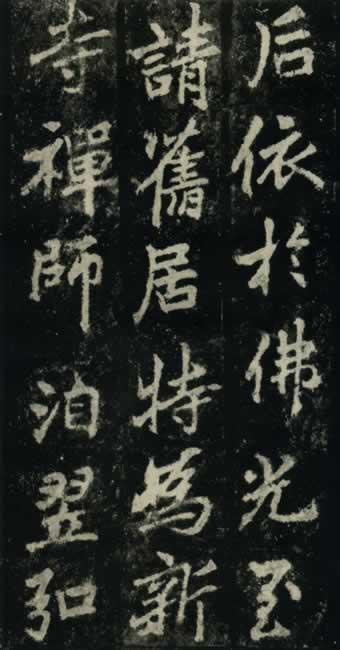 后依於佛光至
請舊居特為新
寺禪師泊翌弘